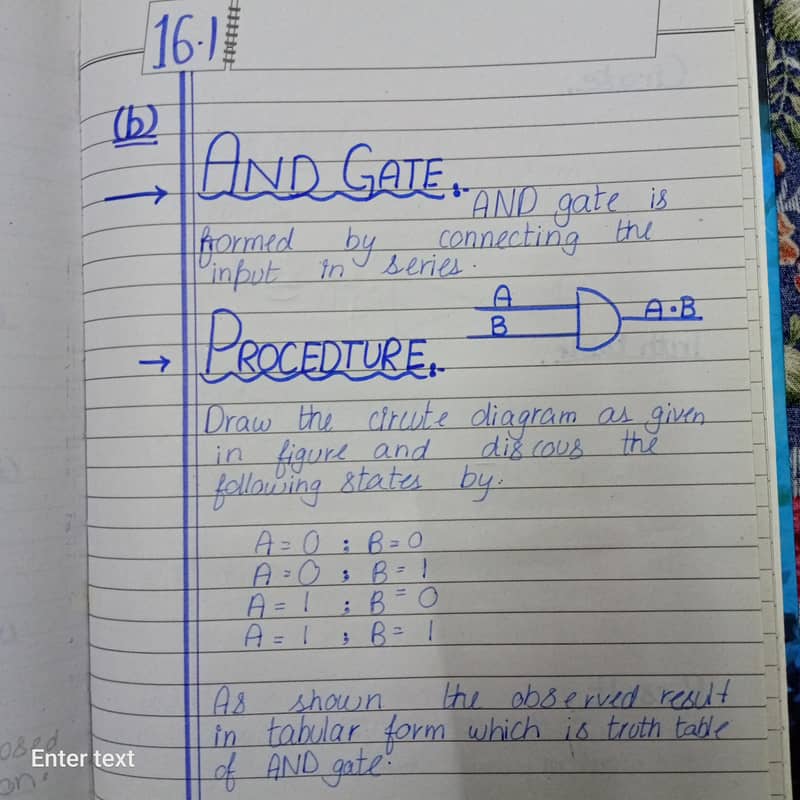 16.1
(b)
AND GATE:-
AND gate is
formed by connecting the
input in series.
A
B
A·B
PROCEDTURE:-
Draw the circute diagram as given
in figure and discous the
following states by.
A = 0 ; B = 0
A = 0 ; B = 1
A = 1 ; B = 0
A = 1 ; B = 1
As shown the observed result
in tabular form which is truth table
of AND gate.
Enter text